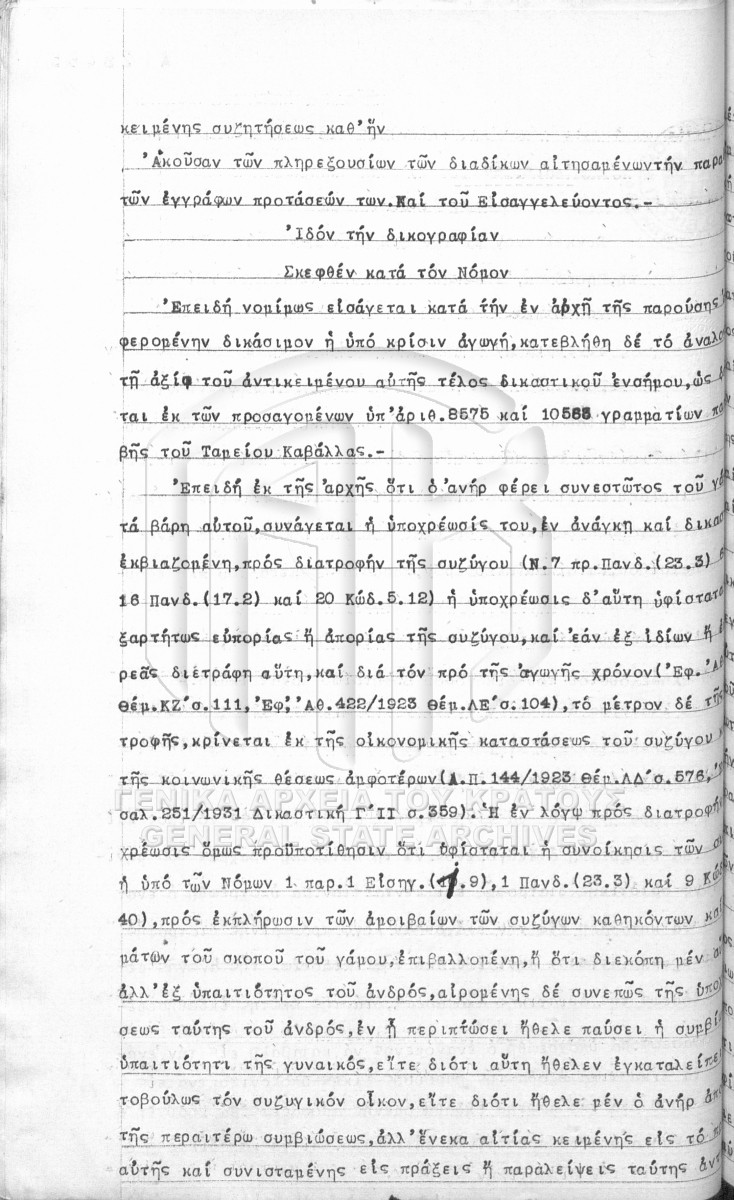 κειμένης συζητήσεως καθ'ἥν
'Ακοῦσαν τῶν πληρεξουσίων τῶν διαδίκων αἰτησαμένωντήν παρα
τῶν ἐγγράφων προτάσεών των.Καί τοῦ Εἰσαγγελεύοντος.-
'Ιδόν τήν δικογραφίαν
Σκεφθέν κατά τόν Νόμον
'Επειδή νομίμως εἰσάγεται κατά τήν ἐν ἀρχῇ τῆς παρούσης
φερομένην δικάσιμον ἡ ὑπό κρίσιν ἀγωγή,κατεβλήθη δέ τό ἀναλο
τῇ ἀξίᾳ τοῦ ἀντικειμένου αὐτῆς τέλος δικαστικοῦ ἐνσήμου,ὡς
ται ἐκ τῶν προσαγομένων ὑπ'ἀριθ.8575 καί 10568 γραμματίων πα
βῆς τοῦ Ταμείου Καβάλλας.-
'Επειδή ἐκ τῆς ἀρχῆς ὅτι ὁ ἀνήρ φέρει συνεστῶτος τοῦ γά
τά βάρη αὐτοῦ,συνάγεται ἡ ὑποχρέωσίς του,ἐν ἀνάγκῃ καί δικασ
ἐκβιαζομένη,πρός διατροφήν τῆς συζύγου (Ν.7 πρ.Πανδ.(23.3)
16 Πανδ.(17.2) καί 20 Κώδ.5.12) ἡ ὑποχρέωσις δ'αὕτη ὑφίστατο
ξαρτήτως εὐπορίας ἤ ἀπορίας τῆς συζύγου,καί ἐάν ἐξ ἰδίων ἤ
ρεᾶς διετράφη αὕτη,καί διά τόν πρό τῆς ἀγωγῆς χρόνον('Εφ.'Αθ
Θέμ.ΚΖ'σ.111,'Εφ.'Αθ.422/1923 Θέμ.ΛΕ'σ.104),τό μέτρον δέ τῆς
τροφῆς,κρίνεται ἐκ τῆς οἰκονομικῆς καταστάσεως τοῦ συζύγου
τῆς κοινωνικῆς θέσεως ἀμφοτέρων(Α.Π.144/1923 Θέμ.ΛΔ'σ.576,
σαλ.251/1931 Δικαστική Γ'ΙΙ σ.359).Ἡ ἐν λόγῳ πρός διατροφήν
χρέωσις ὅμως προϋποτίθησιν ὅτι ὑφίσταται ἡ συνοίκησις τῶν
ἡ ὑπό τῶν Νόμων 1 παρ.1 Εἰσηγ.( .9),1 Πανδ.(23.3) καί 9 Κώδ
40),πρός ἐκπλήρωσιν τῶν ἀμοιβαίων τῶν συζύγων καθηκόντων καί
μάτων τοῦ σκοποῦ τοῦ γάμου,ἐπιβαλλομένη,ἤ ὅτι διεκόπη μέν
ἀλλ'ἐξ ὑπαιτιότητος τοῦ ἀνδρός,αἰρομένης δέ συνεπῶς τῆς ὑπο
σεως ταύτης τοῦ ἀνδρός,ἐν ᾗ περιπτώσει ἤθελε παύσει ἡ συμβί
ὑπαιτιότητι τῆς γυναικός,εἴτε διότι αὕτη ἤθελεν ἐγκαταλείπει
τοβούλως τόν συζυγικόν οἶκον,εἴτε διότι ἤθελε μέν ὁ ἀνήρ
τῆς περαιτέρω συμβιώσεως,ἀλλ'ἕνεκα αἰτίας κειμένης εἰς τό
αὐτῆς καί συνισταμένης εἰς πράξεις ἤ παραλείψεις ταύτης ἀντ
ΓΕΝΙΚΑ ΑΡΧΕΙΑ ΤΟΥ ΚΡΑΤΟΥΣ
GENERAL STATE ARCHIVES